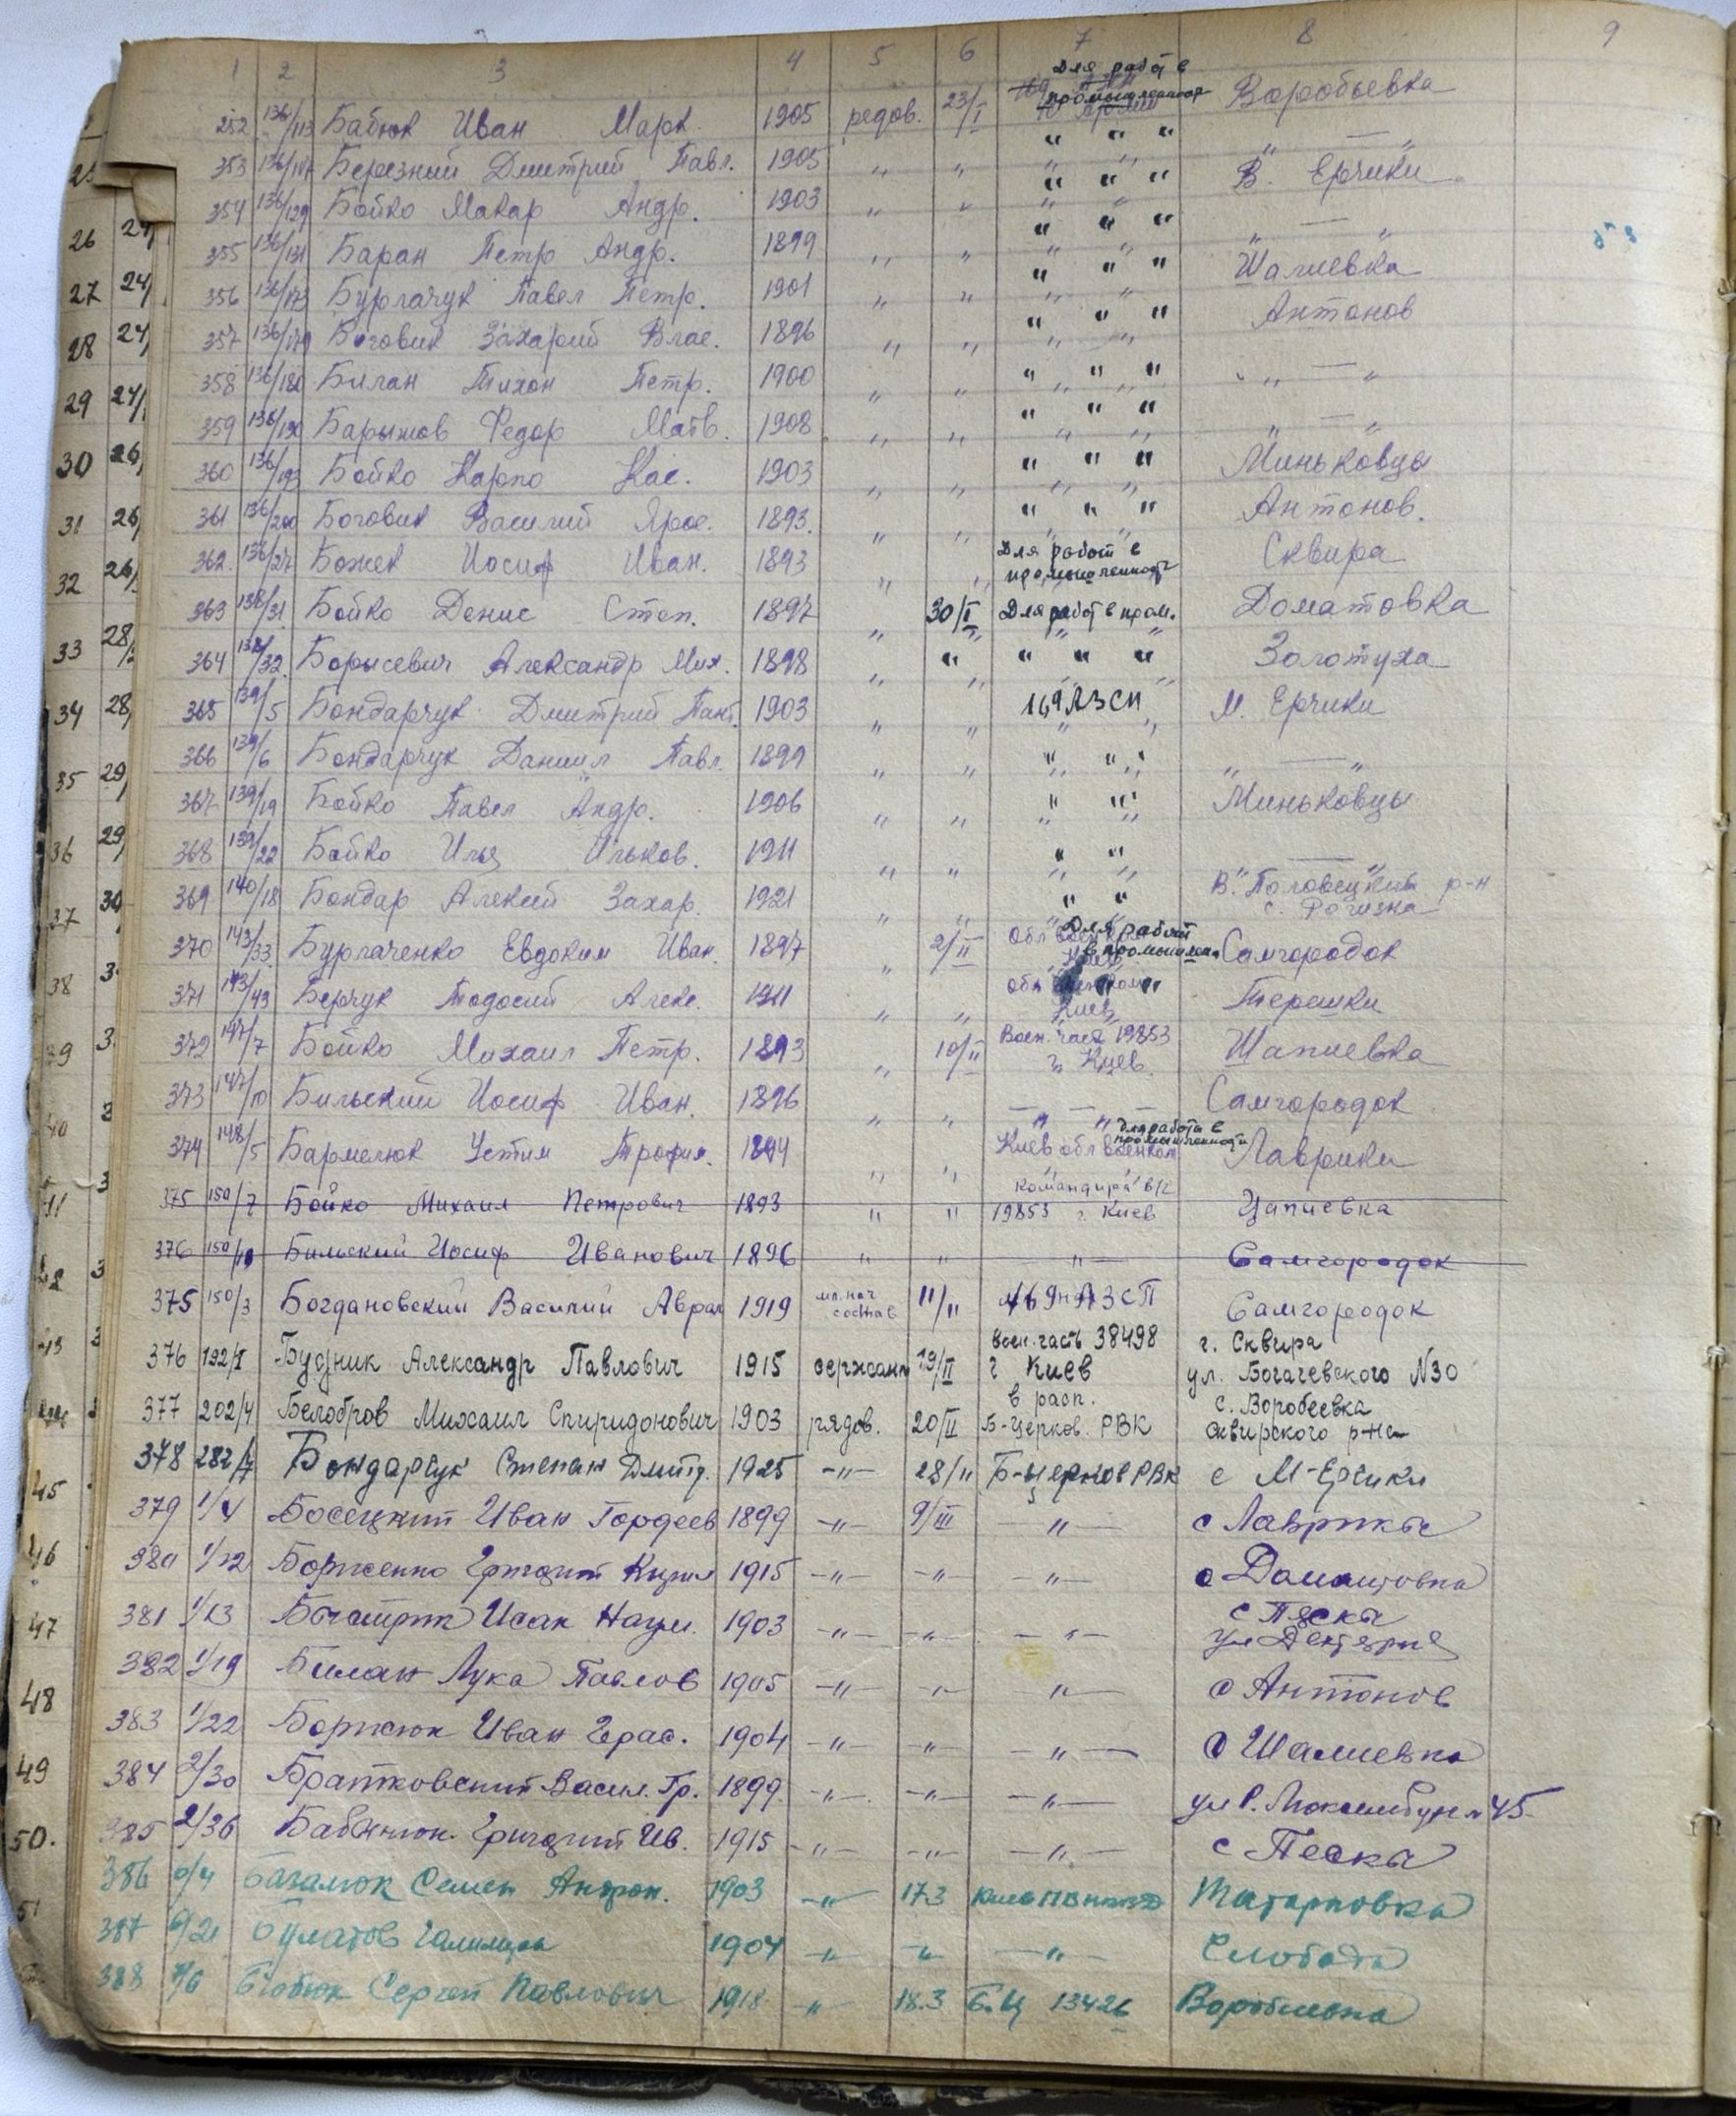 1 2 3 4 5 6 7 8 9
252 136/113 Бабюк Иван Марк. 1905 редов. 23/I Для работ в промышленност Воробьевка
353 136/117 Березний Дмитрий Павл. 1905 " " " " " " — "
354 136/129 Бойко Макар Андр. 1903 " " " " " В. Ерчики
355 136/131 Баран Петр Андр. 1899 " " " " " " — "
356 136/173 Бурлачук Павел Петр. 1901 " " " " " Шалиевка
357 136/179 Боговик Захарий Влас. 1896 " " " " " Антонов
358 136/180 Билан Тихон Петр. 1900 " " " " " " — "
359 136/190 Барышов Федор Матв. 1908 " " " " " " — "
360 136/193 Бойко Карпо Кас. 1903 " " " " " Миньковцы
361 136/200 Боговик Василий Яров. 1893 " " " " " Антонов.
362. 136/27 Божек Иосиф Иван. 1893 " " Для работ в промышленност Сквира
363 138/31 Бойко Денис Степ. 1897 " 30/I Для работ в пром. Доматовка
364 138/32 Борысевич Александр Мих. 1898 " " " " " Золотуха
365 139/5 Бондарчук Дмитрий Пант. 1903 " " 169 АЗСП М. Ерчики
366 139/6 Бондарчук Даниил Павл. 1899 " " " " " — "
367 139/19 Бойко Павел Андр. 1906 " " " " Миньковцы
368 139/22 Бойко Илья Ильков. 1911 " " " " " — "
369 140/18 Бондар Алексий Захар. 1921 " " " " В. Половецкий р-н с. Рогизна
370 143/33 Бурлаченко Евдоким Иван. 1897 " 2/II Для работ в промышлен. Самгородок
371 143/43 Берчук Тодосий Алекс. 1911 " " Обл военком Киев Терешки
372 147/7 Бойко Михаил Петр. 1893 " 10/II Воен. част 19853 г. Киев. Шапиевка
373 147/10 Бильский Иосиф Иван. 1896 " " — " — " — Самгородок
374 148/5 Бармелюк Устим Трофим. 1894 " " Киев обл военком для работы в промышленности Лаврики
375 150/7 Бойко Михаил Петрович 1893 " " командира в/ч 19853 г. Киев Цапиевка
376 150/10 Бильский Иосиф Иванович 1896 " " — " — Самгородок
375 150/3 Богдановский Василий Аврам 1919 мл. нач состав 11/II 169 АЗСП Самгородок
376 192/I Будник Александр Павлович 1915 сержант 19/II воен. часть 38498 г Киев г. Сквира ул. Богачевского N30
377 202/4 Белобров Михаил Спиридонович 1903 рядов. 20/II в расп. Б-Церков. РВК с. Воробеевка Сквирского р-на
378 282/4 Бондарчук Степан Дмитр. 1925 —"— 28/II Б-церков РВК с М-Ерчики
379 1/4 Босецкий Иван Гордеев 1899 —"— 9/III —"— с Лаврики
380 1/12 Борженко Григорий Кирил 1915 —"— —"— —"— с Доматовка
381 1/13 Быстрик Исак Наум. 1903 —"— —"— —"— с Пески
382 1/19 Билан Лука Павлов 1905 —"— —"— —"— с Антонов
383 1/22 Боржюк Иван Герас. 1904 —"— —"— —"— с Шалиевка
384 2/30 Братковский Васил. Гр. 1899. —"— —"— —"— ул Р. Люксембург N 45
385 2/36 Григорий Ив. 1915 —"— —"— —"— с Пески
386 6/4 Багалюк Семен Андрон. 1903 —"— 17.3 Татариовка
387 6/21 Булатов 1904 —"— —"— —"— Слобода
388 7/6 Бабюк Сергей Павлович 1918 —"— 18.3 Б.Ц 13426 Воробиевка
26 24/
27 24/
28 24/
29 24/
30 26/
31 26/
32 26/
33 28/
34 28/
35 29/
36 29/
37 30
38 3
39 3
45
46
47
48
49
50.
51